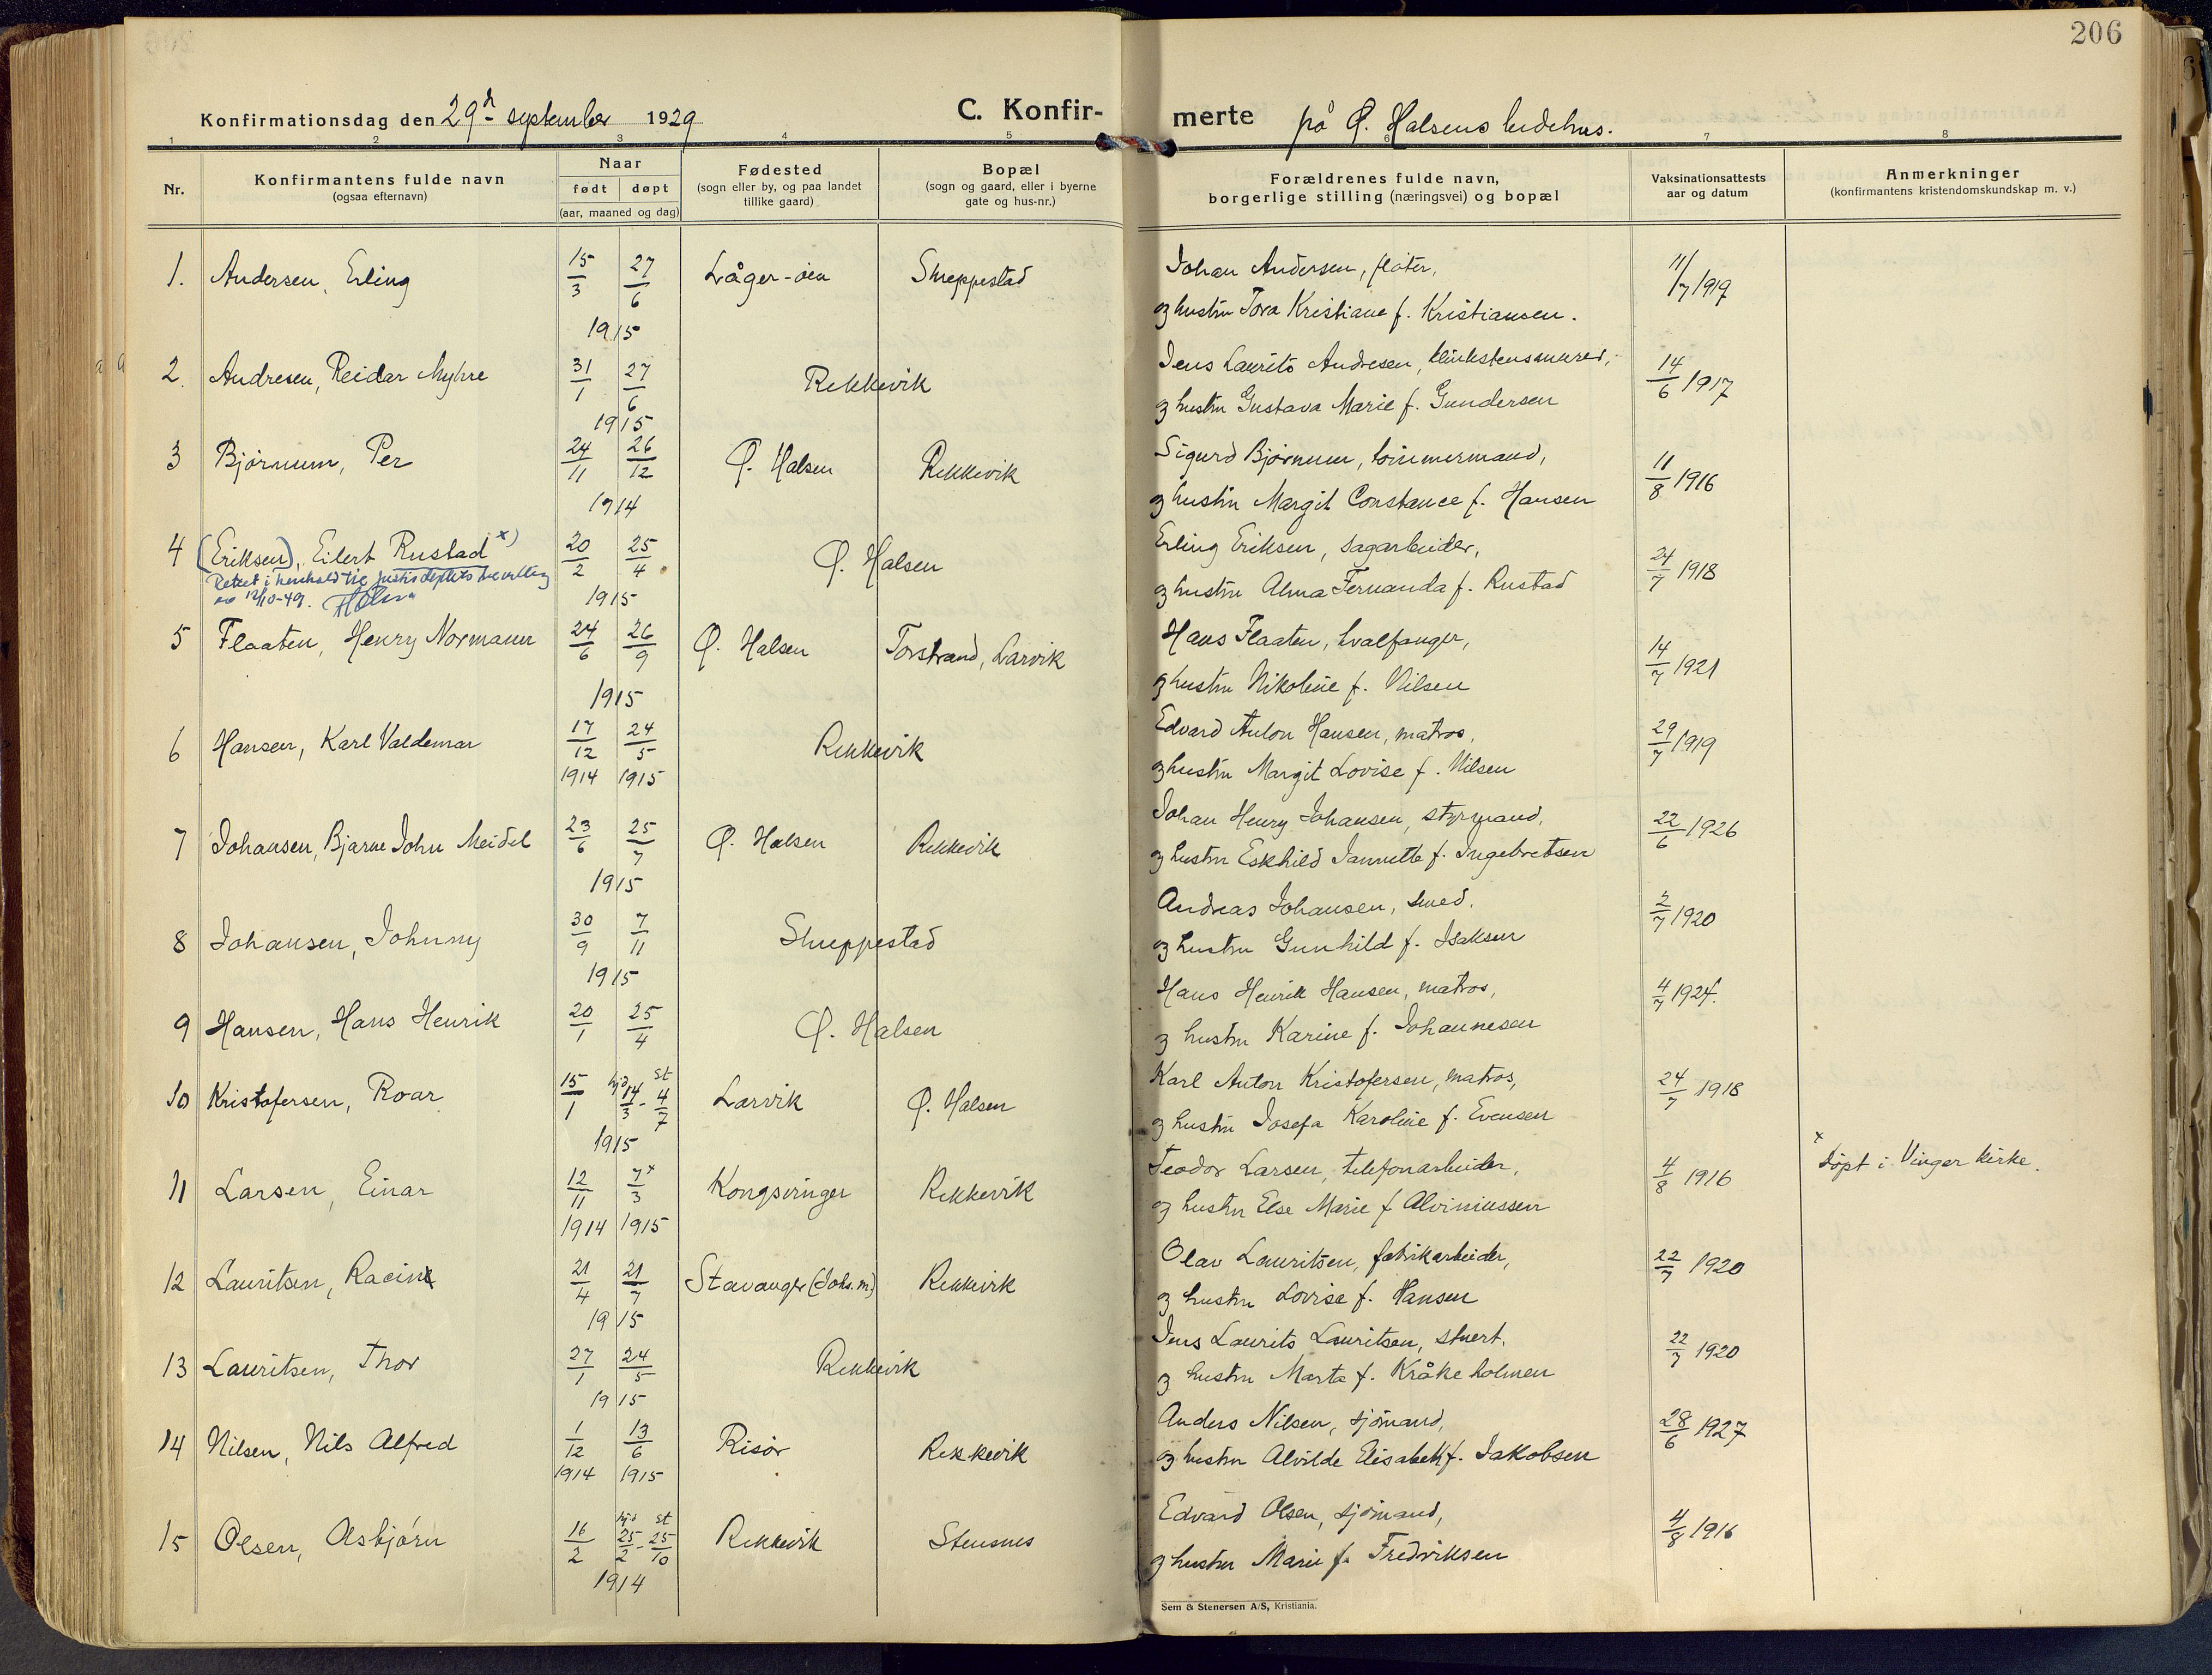 206
Konfirmationsdag den 29de september 1929
C. Konfir- merte på Ø. Halsens bedehus.
1 2 3 4 5 7 8
Nr.
Konfirmantens fulde navn
(ogsaa efternavn)
Naar
født døpt
(aar, maaned og dag)
Fødested
(sogn eller by, og paa landet
tillike gaard)
Bopæl
(sogn og gaard, eller i byerne
gate og hus-nr.)
Forældrenes fulde navn,
borgerlige stilling (næringsvei) og bopæl
Vaksinationsattests
aar og datum
Anmerkninger
(konfirmantens kristendomskundskap m. v.)
1. Andersen, Erling 15/3 27/6 1915 Låger-øen Skreppestad
Johan Andersen, fløter,
og hustru Tora Kristiane f. Kristiansen.
11/7 1919
2. Andresen, Reidar Myhre 31/1 27/6 1915 Rekkevik
Jens Laurits Andresen, klinkstensmurer,
og hustru Gustava Marie f. Gundersen
14/6 1917
3 Bjørnum, Per 24/11 26/12 1914 Ø. Halsen Rekkevik
Sigurd Bjørnum, tømmermand,
og hustru Margit Constance f. Hansen
11/8 1916
4 (Eriksen), Eilert Rustad x) 20/2 25/4 1915 Ø. Halsen
Rettet i henhold til justisdeptets bevilling
av 12/10-49.
Erling Eriksen, sagarbeider,
og hustru Alma Fernanda f. Rustad
24/7 1918
5 Flaaten, Henry Normann 24/6 26/9 1915 Ø. Halsen Torstrand, Larvik
Hans Flaaten, hvalfanger,
og hustru Nikoline f. Nilsen
14/7 1921
6 Hansen, Karl Valdemar 17/12 1914 24/5 1915 Rekkevik
Edvard Anton Hansen, matros,
og hustru Margit Lovise f. Nilsen
29/7 1919
7 Johansen, Bjarne John Meidel 23/6 25/7 1915 Ø. Halsen Rekkevik
Johan Henry Johansen, styrmand,
og hustru Eskhild Jannette f. Ingebretsen
22/6 1926
8 Johansen, Johnny 30/9 7/11 1915 Skreppestad
Andreas Johansen, smed,
og hustru Gunhild f. Isaksen
2/7 1920
9 Hansen, Hans Henrik 20/1 25/4 Ø. Halsen
Hans Henrik Hansen, matros,
og hustru Karine f. Johannesen
4/7 1924.
10 Kristofersen, Roar 15/1 hjd 14/3 - st 4/7 1915 Larvik Ø. Halsen
Karl Anton Kristofersen, matros,
og hustru Josefa Karoline f. Evensen
24/7 1918
11 Larsen, Einar 12/11 1914 7/3 x 1915 Kongsvinger Rekkevik
Teodor Larsen, telefonarbeider,
og hustru Else Marie f. Alviniussen
4/8 1916
x døpt i Vinger kirke.
12 Lauritsen, Racin 21/4 21/7 1915 Stavanger (Johs. m) Rekkevik
Olav Lauritsen, fabrikarbeider,
og hustru Lovise f. Hansen
22/7 1920
13 Lauritsen, Thor 27/1 24/5 1915 Rekkevik
Jens Laurits Lauritsen, stuert,
og hustru Marta f. Kråkeholmen
22/7 1920
14 Nilsen, Nils Alfred 1/12 1914 13/6 1915 Risør Rekkevik
Anders Nilsen, sjømand,
og hustru Alvilde Elisabeth f. Jakobsen
28/6 1927
15 Olsen, Asbjørn 16/2 hjd 25/2 - st 25/10 1914 Rekkevik Stensnes
Edvard Olsen, sjømand,
og hustru Marie f. Fredriksen
4/8 1916
Sem & Stenersen A/S, Kristiania.